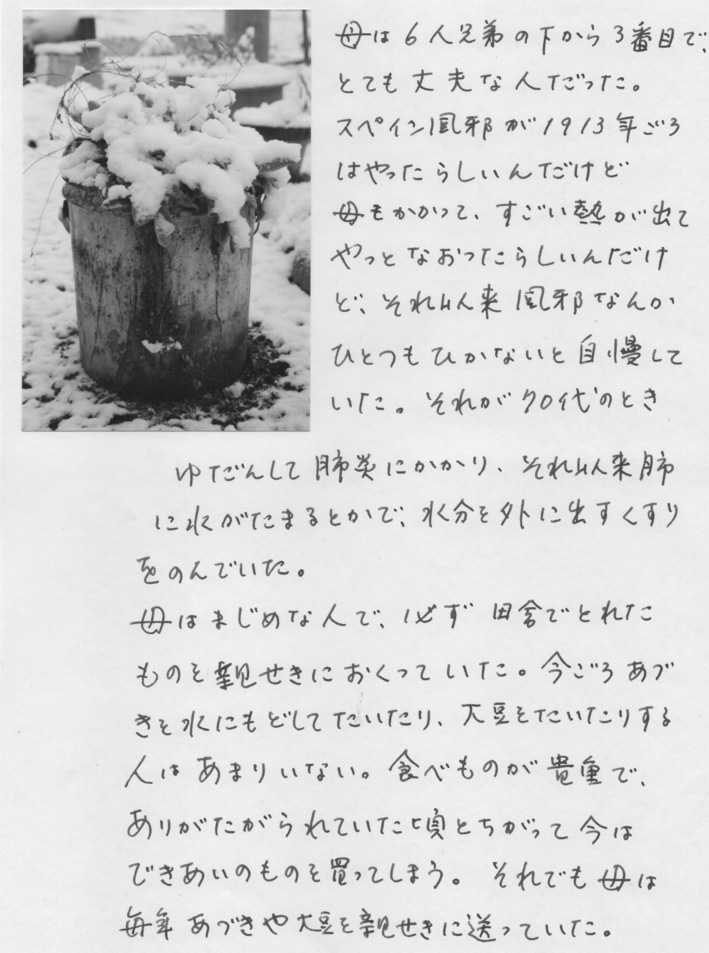 母は6人兄弟の下から3番目で、
とても丈夫な人だった。
スペイン風邪が1913年ごろ
はやったらしいんだけど
母もかかって、すごい熱が出て
やっとなおったらしいんだけ
ど、それ以来風邪なんか
ひとつもひかないと自慢して
いた。それが90代のとき
ゆだんして肺炎にかかり、それ以来肺
に水がたまるとかで、水分を外に出すくすり
をのんでいた。
母はまじめな人で、必ず田舎でとれた
ものを親せきにおくっていた。今ごろあづ
きを水にもどしてたいたり、大豆をたいたりする
人はあまりいない。食べものが貴重で、
ありがたがられていた頃とちがって今は
できあいのものを買ってしまう。それでも母は
毎年あづきや大豆を親せきに送っていた。